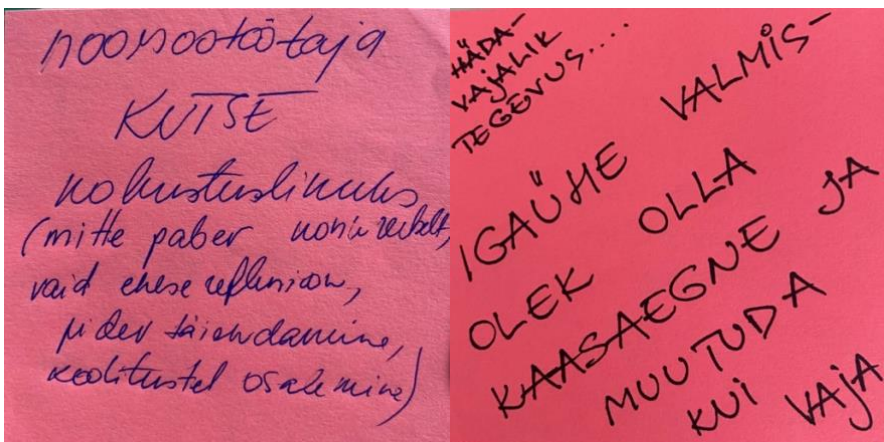 noorsootöötaja
KUTSE
kohustuslikuks
(mitte paber
vaid enese refleksioon,
pidev täiendamine,
koolitustel osalemine)
HÄDA-
VAJALIK
TEGEVUS....
IGAÜHE VALMIS-
OLEK OLLA
KAASAEGNE JA
MUUTUDA
KUI VAJA